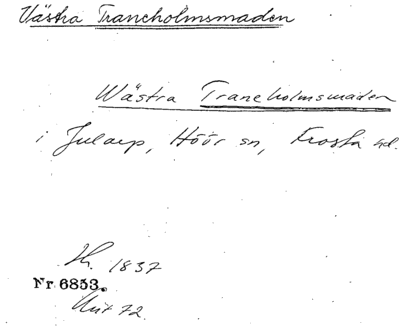 Västra Traneholmsmaden
Wästra Traneholmsmaden
i Jularp, Höör sn, Frosta hd.
1837
Nr 6853.
72